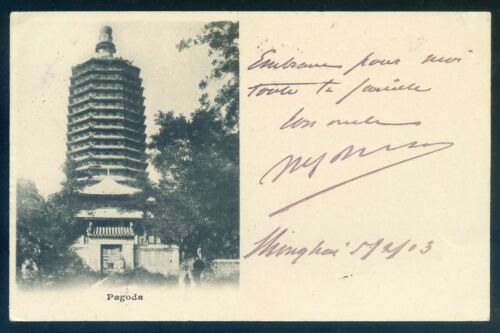 Pagoda
Embrasse pour moi
toute ta famille
ton oncle
Shanghai 5/2/03